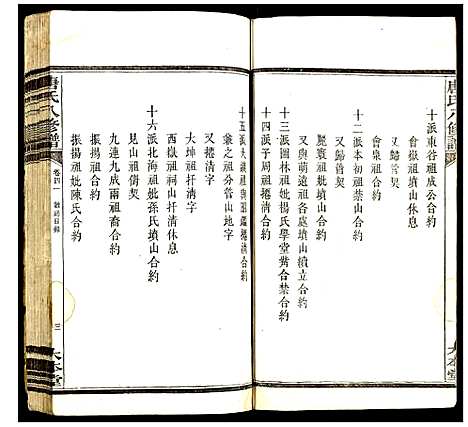 唐氏八修譜
大本堂
十派東谷祖成公合約
會嶽祖墳山休息
又歸晉契
十二派本初祖禁山合約
會泉祖合約
又歸晉契
麗裏祖妣墳山合約
又與萌遠祖各處墳山續立合約
十三派圖林祖妣楊氏學堂嵜合禁合約
十四派于周祖捲清合約
十五派大
又捲清字
山地字
大坤祖扦清字
西嶽祖祠山扦清休息
十六派北海祖妣孫氏墳山合約
見山祖傭約
九連九成兩祖裔合約
振揚祖合約
振揚祖妣陳氏合約
唐氏八修譜
卷四
目錄
三
大本堂